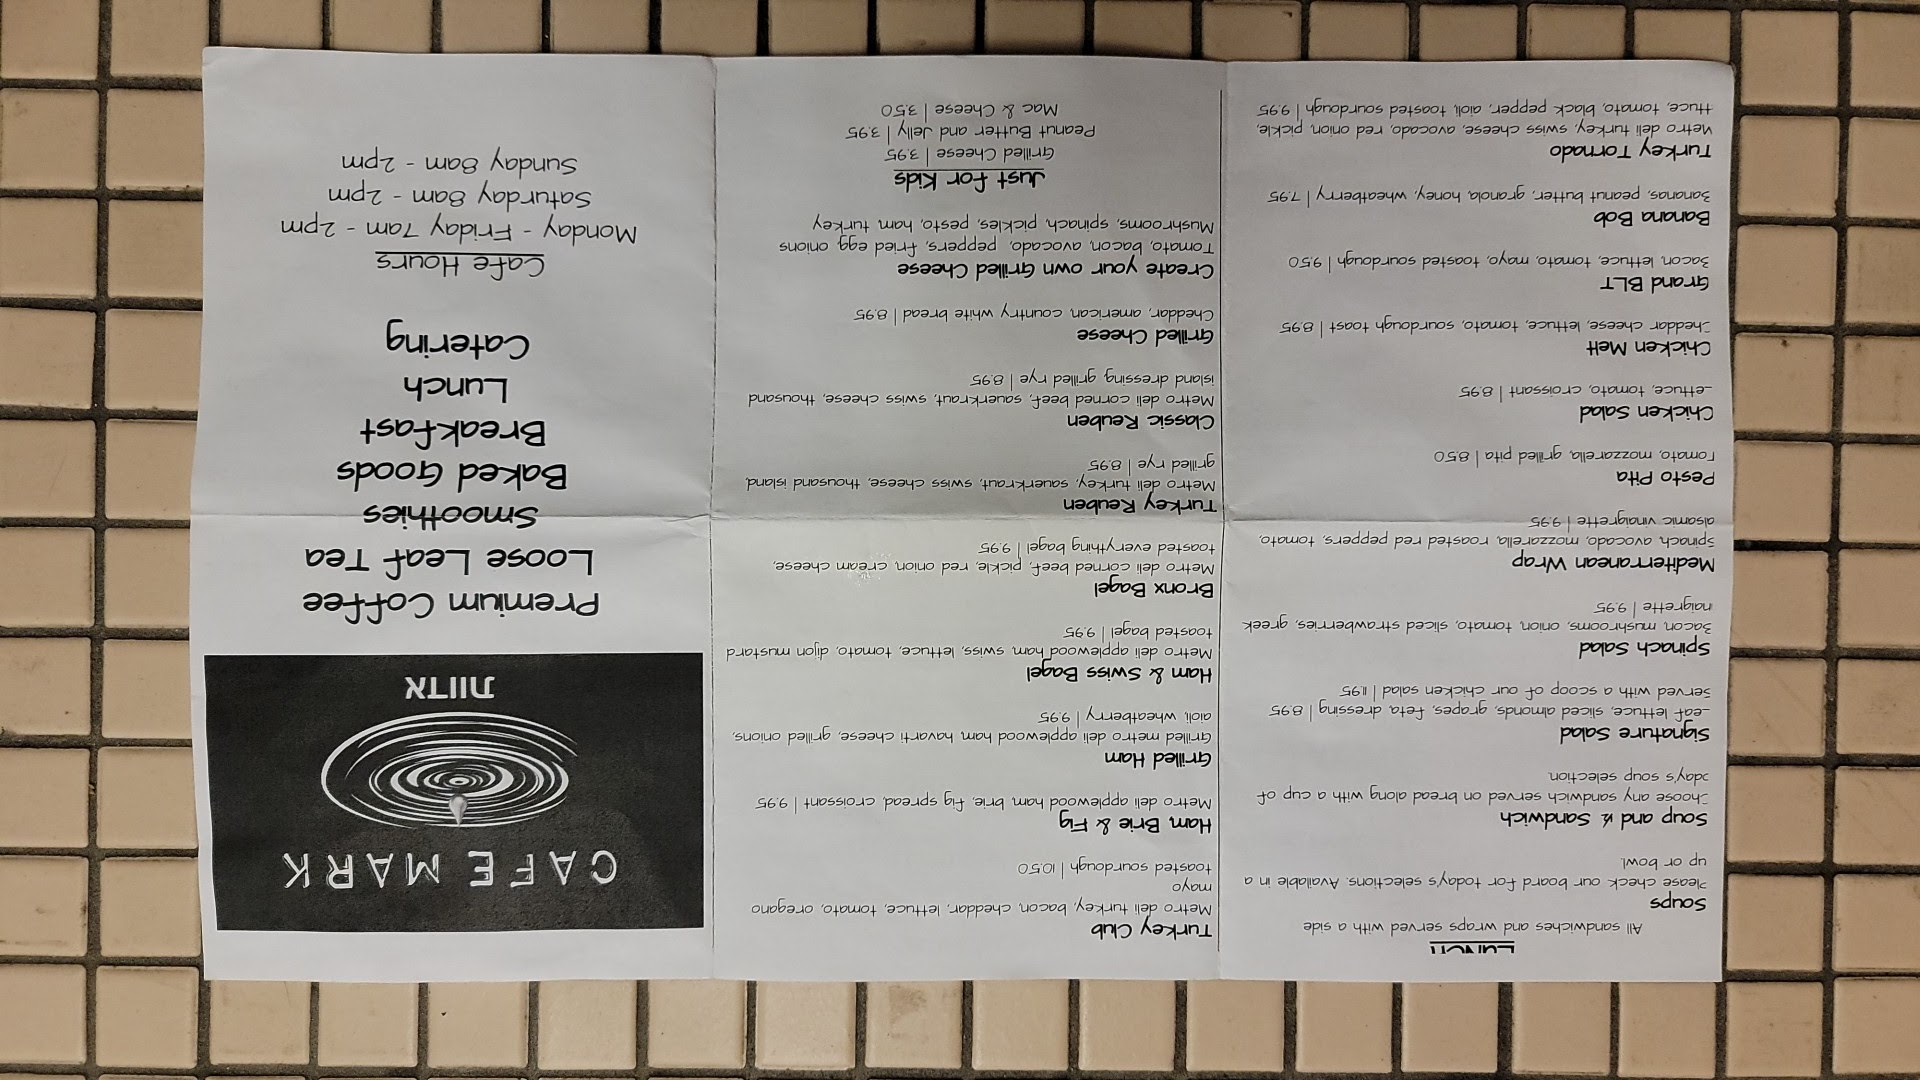 LUNCH
All sandwiches and wraps served with a side
Soups
Please check our board for today's selections. Available in a
up or bowl.
Soup and ½ Sandwich
Choose any sandwich served on bread along with a cup of
oday's soup selection.
Signature Salad
Leaf lettuce, sliced almonds, grapes, feta, dressing | 8.95
Served with a scoop of our chicken salad | 11.95
Spinach Salad
Bacon, mushrooms, onion, tomato, sliced strawberries, greek
naigrette | 9.95
Mediterranean Wrap
Spinach, avocado, mozzarella, roasted red peppers, tomato,
alsamic vinaigrette | 9.95
Pesto Pita
Tomato, mozzarella, grilled pita | 8.50
Chicken Salad
Lettuce, tomato, croissant | 8.95
Chicken Melt
Cheddar cheese, lettuce, tomato, sourdough toast | 8.95
Grand BLT
Bacon, lettuce, tomato, mayo, toasted sourdough | 9.50
Banana Bob
Bananas, peanut butter, granola, honey, wheatberry | 7.95
Turkey Tornado
Metro deli turkey, swiss cheese, avocado, red onion, pickle,
ttuce, tomato, black pepper, aioli, toasted sourdough | 9.95
Turkey Club
Metro deli turkey, bacon, cheddar, lettuce, tomato, oregano
mayo
toasted sourdough | 10.50
Ham, Brie & Fig
Metro deli applewood ham, brie, fig spread, croissant | 9.95
Grilled Ham
Grilled metro deli applewood ham, havarti cheese, grilled onions,
aioli, wheatberry | 9.95
Ham & Swiss Bagel
Metro deli applewood ham, swiss, lettuce, tomato, dijon mustard
toasted bagel | 9.95
Bronx Bagel
Metro deli corned beef, pickle, red onion, cream cheese,
toasted everything bagel | 9.95
Turkey Reuben
Metro deli turkey, sauerkraut, swiss cheese, thousand island,
grilled rye | 8.95
Classic Reuben
Metro deli corned beef, sauerkraut, swiss cheese, thousand
island dressing, grilled rye | 8.95
Grilled Cheese
Cheddar, american, country white bread | 8.95
Create your own Grilled Cheese
Tomato, bacon, avocado, peppers, fried egg, onions
Mushrooms, spinach, pickles, pesto, ham, turkey
Just for Kids
Grilled Cheese | 3.95
Peanut Butter and Jelly | 3.95
Mac & Cheese | 3.50
CAFE MARK
אדוות
Premium Coffee
Loose Leaf Tea
Smoothies
Baked Goods
Breakfast
Lunch
Catering
Cafe Hours
Monday - Friday 7am - 2pm
Saturday 8am - 2pm
Sunday 8am - 2pm